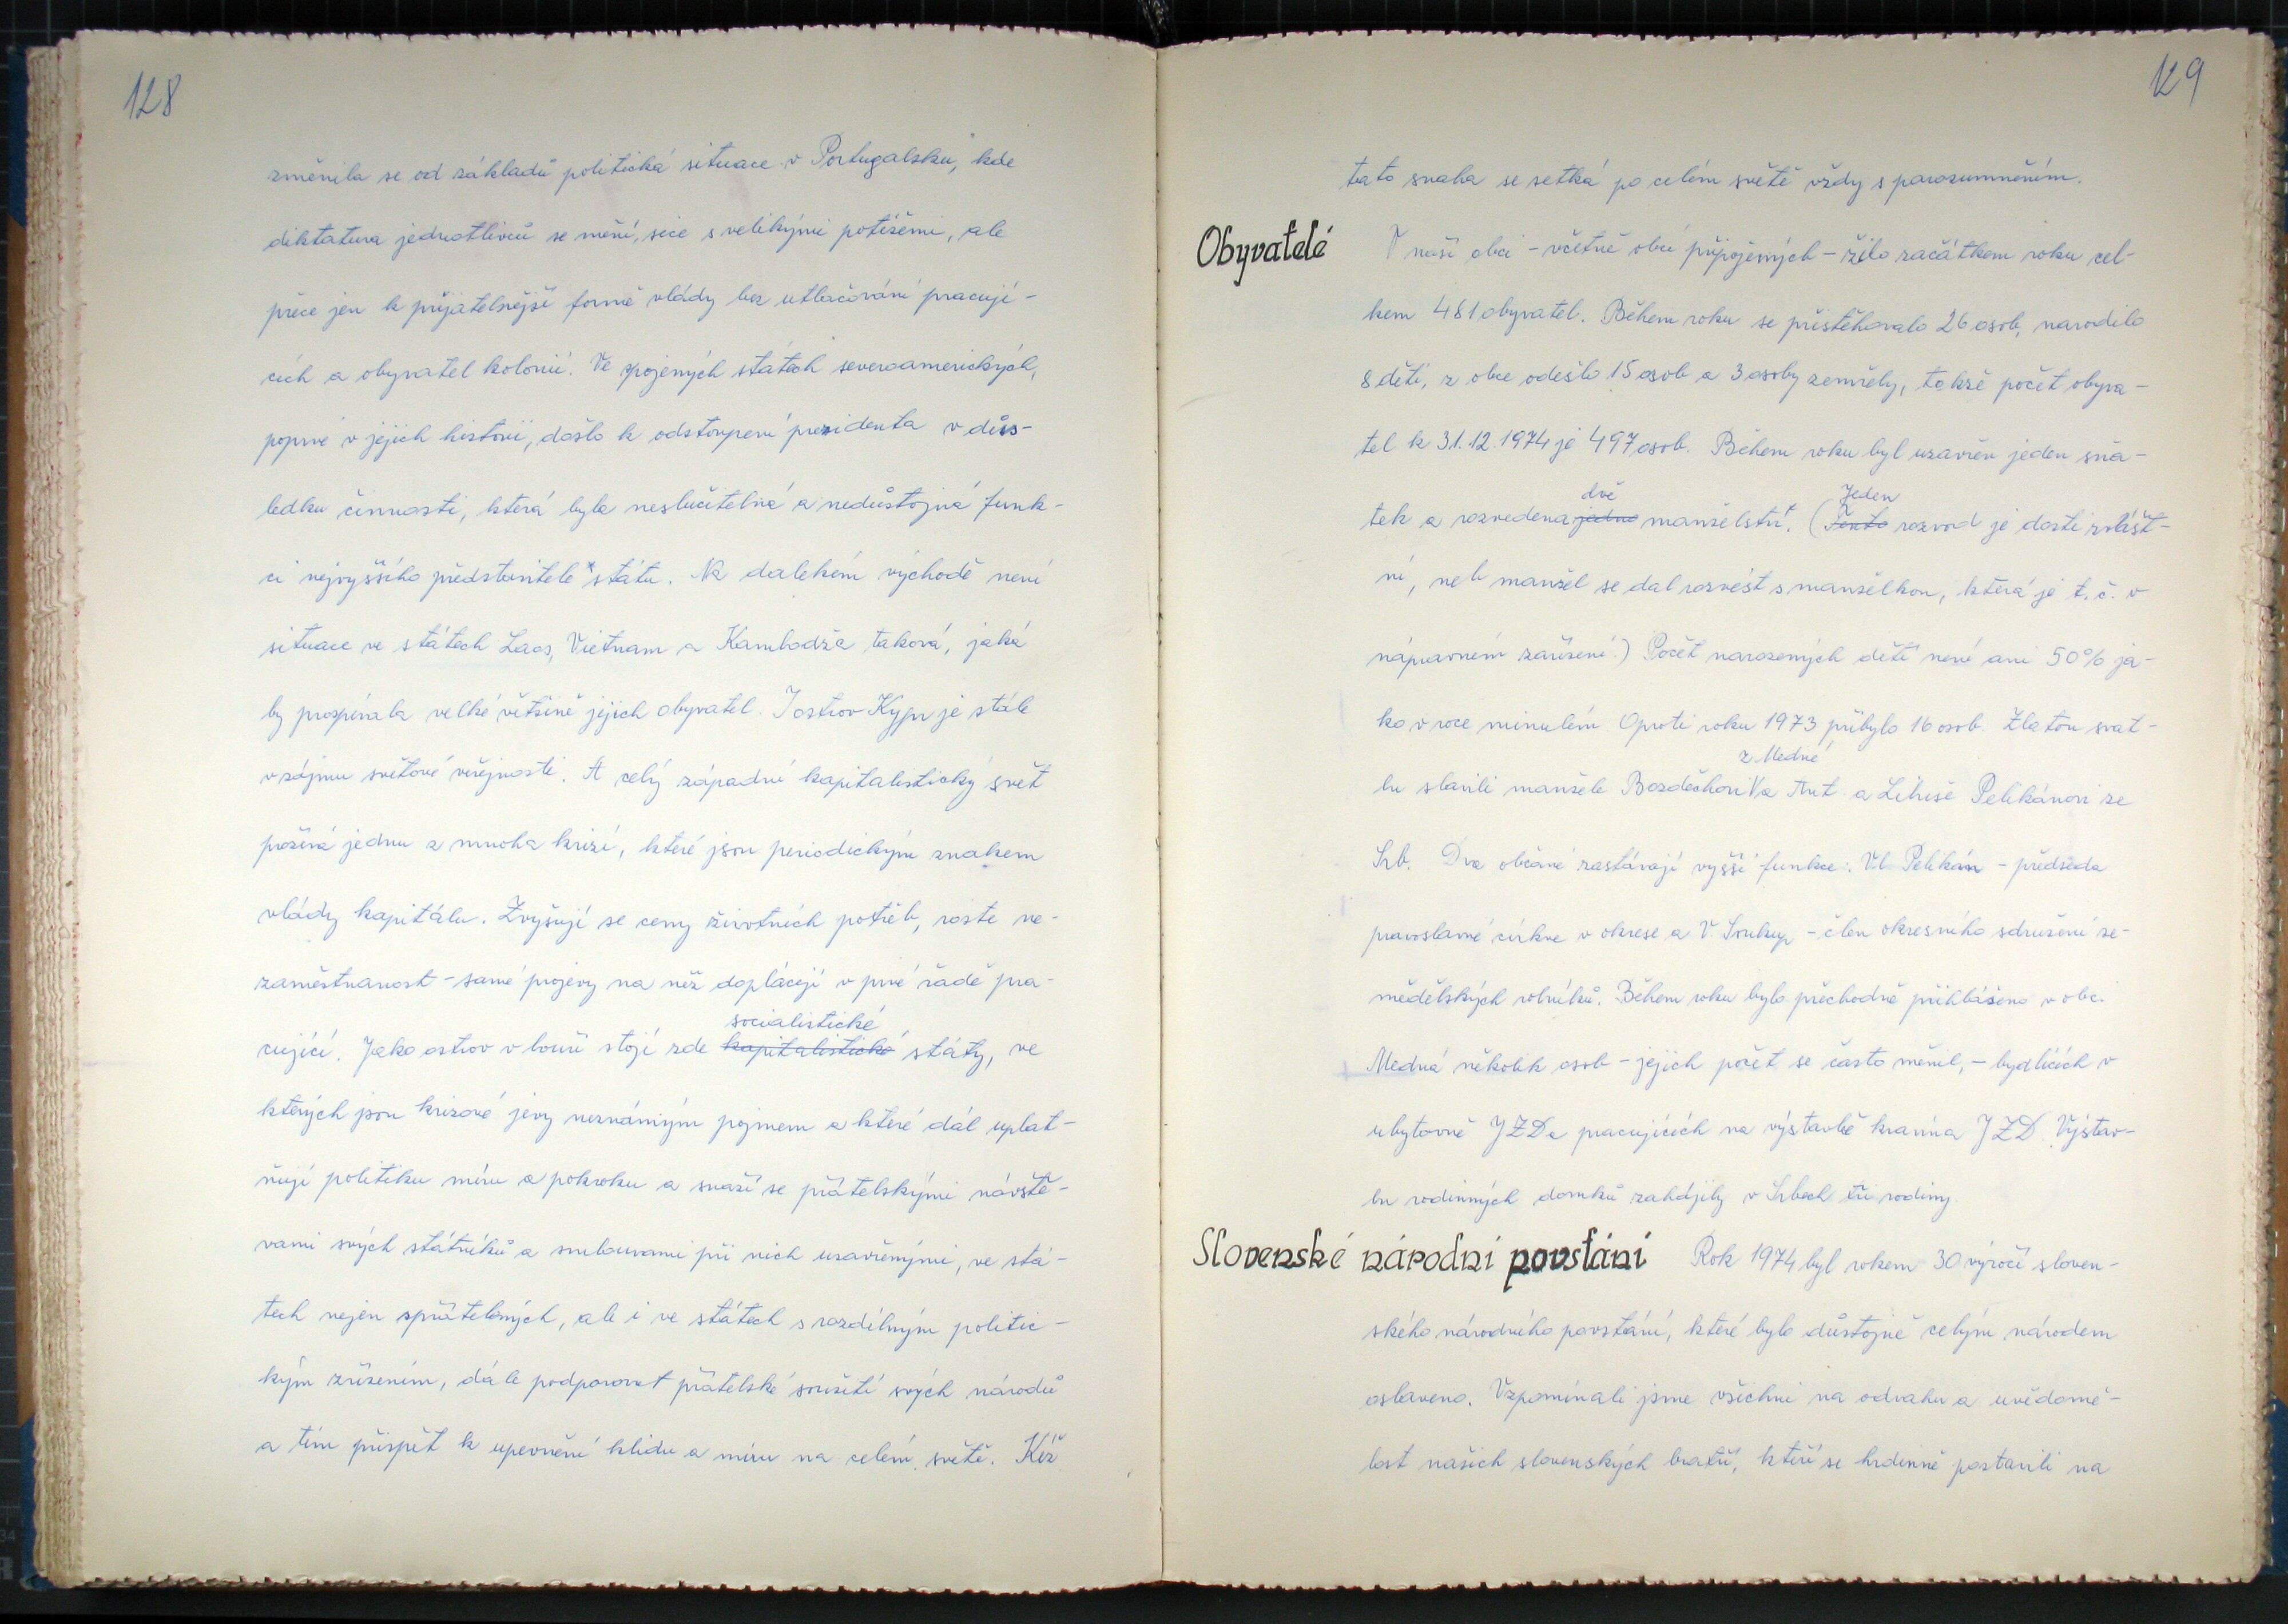 128
změnila se od základů politická situace v Portugalsku, kde
diktatura jednotlivců se mění, sice s velikými potížemi, ale
přece jen k přijatelnější formě vlády bez utlačování pracují-
cích a obyvatel kolonií. Ve spojených státech severoamerických,
poprvé v jejich historii, došlo k odstoupení prezidenta v důs-
ledku činnosti, která byla neslučitelná a nedůstojná funk-
ci nejvyššího představitele státu. Na dalekém východě není
situace ve státech Laos, Vietnam a Kambodža taková, jaká
by prospívala velké většině jejich obyvatel. I ostrov Kypr je stále
v zájmu světové veřejnosti. A celý západní kapitalistický svět
prožívá jednu z mnoha krizí, které jsou periodickým znakem
vlády kapitálu. Zvyšují se ceny životních potřeb, roste ne-
zaměstnanost - samé projevy na něž doplácejí v prvé řadě pra-
socialistické
cující. Jako ostrov v bouři stojí zde kapitalistické státy, ve
kterých jsou krizové jevy neznámým pojmem a které dál uplat-
ňují politiku míru a pokroku a snaží se přátelskými návště-
vami svých státníků a smlouvami při nich uzavřenými, ve stá-
tech nejen spřátelených, ale i ve státech s rozdílným politic-
kým zřízením, dále podporovat přátelské soužití svých národů
a tím přispět k upevnění klidu a míru na celém světě. Kéž
129
tato snaha se setká po celém světě vždy s porozumněním.
Obyvatelé V naší obci - včetně obcí připojených - žilo začátkem roku cel-
kem 481 obyvatel. Během roku se přistěhovalo 26 osob, narodilo
8 dětí, z obce odešlo 15 osob a 3 osoby zemřely, takže počet obyva-
tel k 31.12.1974 je 497 osob. Během roku byl uzavřen jeden sňa-
dvě Jeden
tek a rozvedena jedno manželství. (Tento rozvod je dosti zvlášt-
ní, neb manžel se dal rozvést s manželkou, která je t.č. v
nápravném zařízení.) Počet narozených dětí není ani 50% ja-
ko v roce minulém. Oproti roku 1973 přibylo 16 osob. Zlatou svat-
z Medné
bu slavili manželé Bozděchovi a Ant. a Libuše Pelikánovi ze
Srb. Dva občané zastávají vyšší funkce: Vl. Pelikán - předseda
pravoslavné církve v okrese a V. Soukup - člen okresního sdružení ze-
mědělských rolníků. Během roku bylo přechodně přihlášeno v obci
Medná několik osob - jejich počet se často měnil, - bydlících v
ubytovně JZD a pracujících na výstavbě kravína JZD. Výstav-
bu rodinných domků zahájily v Srbech tři rodiny.
Slovenské národní povstání Rok 1974 byl rokem 30 výročí sloven-
ského národního povstání, které bylo důstojně celým národem
oslaveno. Vzpomínali jsme všichni na odvahu a uvědomě-
lost našich slovenských bratří, kteří se hrdinně postavili na